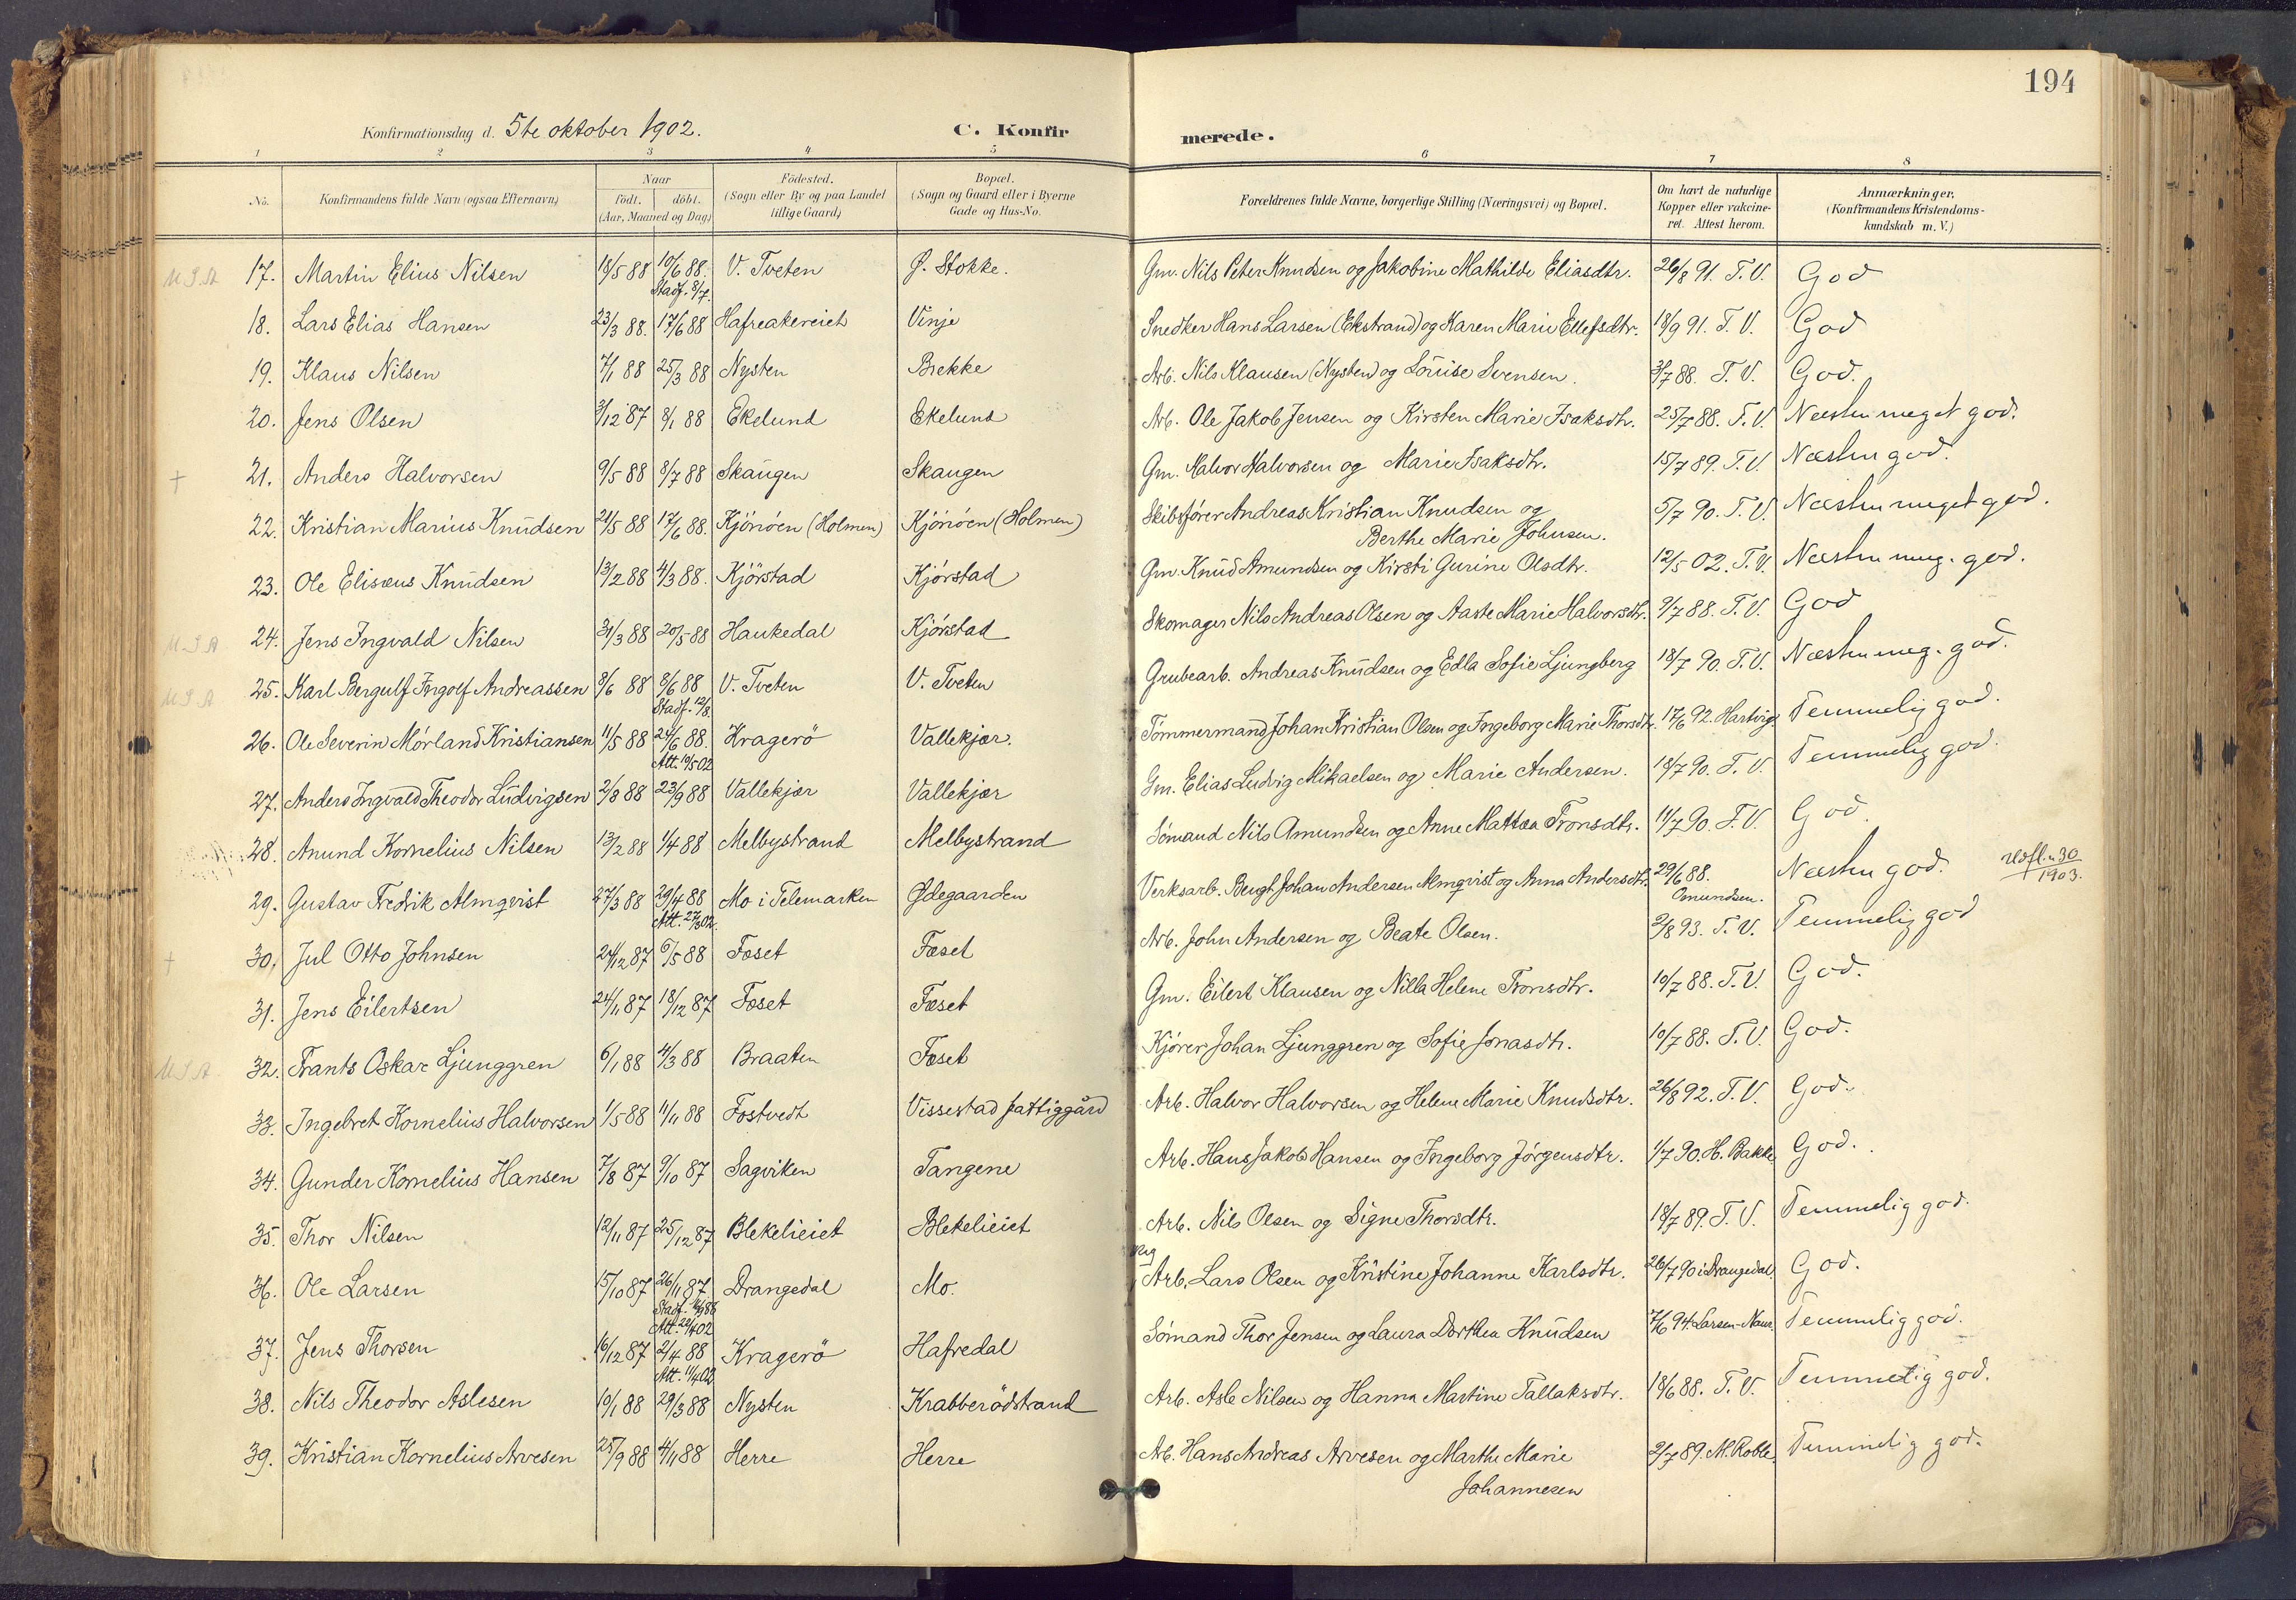 194
Konfirmationsdag d. 5te oktober 1902. C. Konfirmerede.
1 2 3 4 5 6 7 8
No. Konfirmandens fulde Navn (ogsaa Efternavn) Naar födt. döbt. (Aar, Maaned og Dag) Födested. (Sogn eller By og paa Landet tillige Gaard) Bopæl. (Sogn og Gaard eller i Byerne Gade og Hus-No. Forældrenes fulde Navne, borgerlige Stilling (Næringsvei) og Bopæl. Om havt de naturlige Kopper eller vakcineret. Attest herom. Anmærkninger. (Konfirmandens Kristendomskundskab m. V.)
U.S.A 17. Martin Elius Nilsen 18/5 88 10/6 88. Stadf. 8/7. V. Tveten Ø. Stokke. Gm. Nils Peter Knudsen og Jakobine Mathilde Eliasdtr. 26/8 91. T.V. God
18. Lars Elias Hansen 23/3 88. 17/6 88 Hafreakereiet Vinje Snedker Hans Larsen (Ekstrand) og Karen Marie Ellefsdtr. 18/9 91. T.V. God
19. Klaus Nilsen 7/1 88 25/3 88 Nysten Brekke Arb. Nils Klausen (Nysten) og Louise Svensen. 3/7 88. T.V. God.
20. Jens Olsen 3/12 87 8/1 88 Ekelund Ekelund Arb. Ole Jakob Jensen og Kirsten Marie Isaksdtr. 25/7 88. T.V. Næsten meget god.
+ 21. Anders Halvorsen 9/5 88 8/7 88 Skaugen Skaugen Gm. Halvor Halvorsen og Marie Isaksdtr. 15/7 89. T.V. Næsten god.
22. Kristian Marius Knudsen 21/5 88 17/6 88. Kjönöen (Holmen) Kjönöen (Holmen) Skibsfører Andreas Kristian Knudsen og Berthe Marie Johnsen. 5/7 90. T.V. Næsten meget god.
23. Ole Elisæus Knudsen 13/2 88 4/3 88. Kjörstad Kjörstad Gm. Knud Amundsen og Kirsti Gurine Olsdtr. 12/5 02. T.V. Næsten meg. god.
U.S.A 24. Jens Ingvald Nilsen 31/3 88 20/5 88 Haukedal Kjörstad Skomager Nils Andreas Olsen og Aaste Marie Halvorsdtr. 9/7 88. T.V. God
U.S.A 25. Karl Bergulf Ingolf Andreassen 8/6 88 8/6 88 Stadf. 12/8. V. Tveten V. Tveten Grubearb. Andreas Knudsen og Edla Sofie Ljungberg 18/7 90. T.V. Næsten meg. god.
26. Ole Severin Mörland Kristiansen 11/5 88 24/6 88. Att. 19/5 02 Kragerö Vallekjær. Tömmermand Johan Kristian Olsen og Ingeborg Marie Thorsdtr. 17/6 92. Hartvig Temmelig god.
27. Anders Ingvald Theodor Ludvigsen 2/8 88 23/9 88 Vallekjær Vallekjær Gm. Elias Ludvig Mikaelsen og Marie Andersen. 18/7 90. T.V. Temmelig god.
28. Anund Kornelius Nilsen 13/2 88 1/4 88 Melbystrand Melbystrand Sömand Nils Amundsen og Anne Mathea Tronsdtr. 11/7 90. T.V. God.
29. Gustav Fredrik Almqvist 27/3 88 29/4 88 Att. 27/3 02. Mo i Telemarken Ødegaarden Verksarb. Bengt Johan Andersen Almqvist og Anna Andersdtr. 29/6 88. Omundsen. Næsten god. udfl. n 30 1903.
+ 30. Jul Otto Johnsen 24/12 87 6/5 88 Foset Foset Arb. John Andersen og Beate Olsen. 9/8 93. T.V. Temmelig god
31. Jens Eilertsen 24/11 87 18/12 87 Foset Foset Gm. Eilert Klausen og Nilla Helene Tronsdtr. 10/7 88. T.V. God.
U.S.A. 32. Frants Oskar Ljunggren 6/1 88 4/3 88 Braaten Foset Kjörer Johan Ljunggren og Sofie Jonasdtr. 10/7 88. T.V. God.
33. Ingebret Kornelius Halvorsen 1/5 88 11/11 88 Fostvedt Vissestad fattiggård Arb. Halvor Halvorsen og Helene Marie Knudsdtr. 26/8 92. T.V. God.
34. Gunder Kornelius Hansen 7/8 87 9/10 87 Sagviken Tangene Arb. Hans Jakob Hansen og Ingeborg Jörgensdtr. 1/7 90. H. Bakke God.
35. Thor Nilsen 12/11 87 25/12 87 Blekelieiet Blekelieiet Arb. Nils Olsen og Signe Thorsdtr. 18/7 89. T.V. Temmelig god.
36. Ole Larsen 15/10 87 26/11 87 Drangedal Mo. Arb. Lars Olsen og Kristine Johanne Karlsdtr. 26/7 90 i Drangedal God.
37. Jens Thorsen 16/12 87 2/4 88 Att. 11/4 02 Kragerö Hafredal Sömand Thor Jensen og Laura Dorthea Knudsen 7/6 94. Larsen-Naur. Temmelig god.
38. Nils Theodor Aslesen 10/1 88 29/3 88 Nysten Krabberödstrand Arb. Asle Nilsen og Hanna Martine Tallaksdtr. 18/6 88. T.V. Temmelig god.
39. Kristian Kornelius Arvesen 25/9 88 4/11 88 Herre Herre Arb. Hans Andreas Arvesen og Marthe Marie Johannesen 2/7 89. M. Roble. Temmelig god.